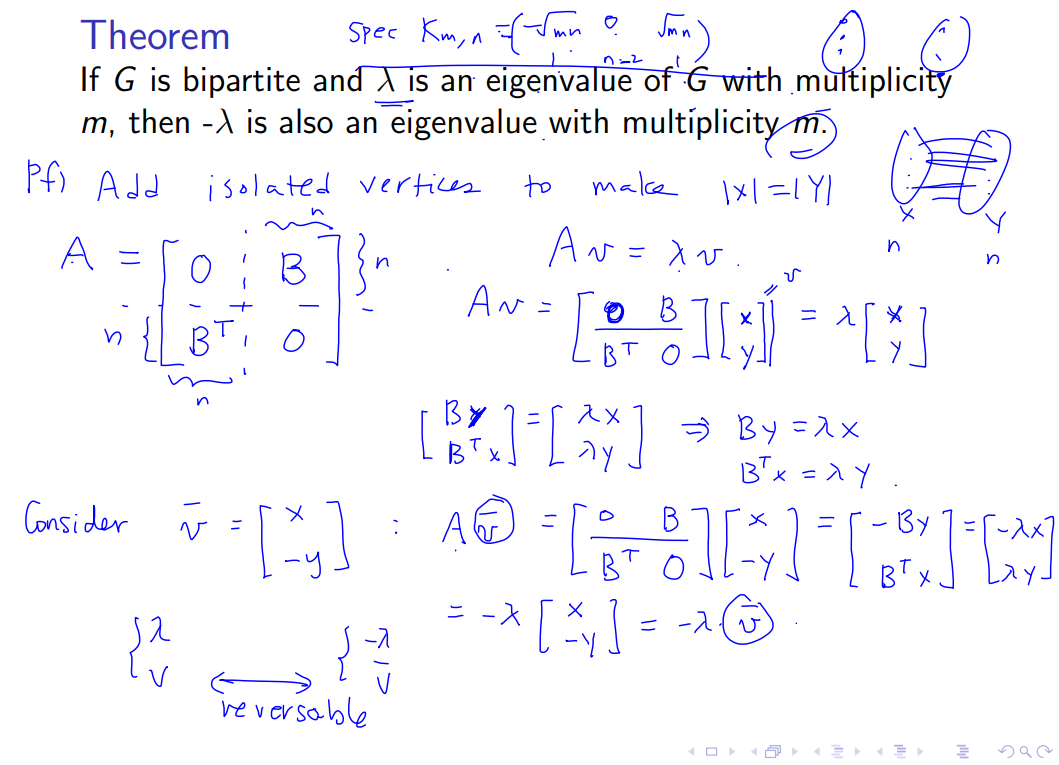 Theorem
spec Km,n = (-√mn 0 √mn)
1 n-2 1
If G is bipartite and λ is an eigenvalue of G with multiplicity
m, then -λ is also an eigenvalue with multiplicity m.
Pf) Add isolated vertices to make |x|=|Y|
X Y
n n
A = [ 0 B ] } n
n { [ Bᵀ 0 ]
n
n
Av = λv.
v
Av = [ 0 B ; Bᵀ 0 ] [ x ; y ] = λ [ x ; y ]
[ By ; Bᵀx ] = [ λx ; λy ] ⇒ By = λx
Bᵀx = λy.
Consider v̄ = [ x ; -y ] : Av̄ = [ 0 B ; Bᵀ 0 ] [ x ; -y ] = [ -By ; Bᵀx ] = [ -λx ; λy ]
= -λ [ x ; -y ] = -λ v̄.
{ λ { -λ
v v̄
reversable